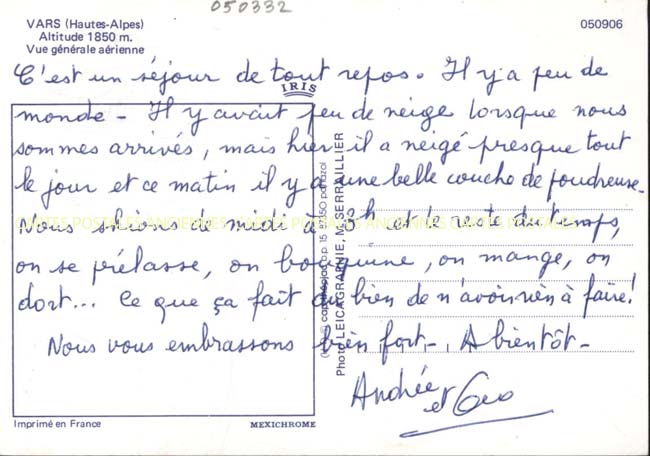 050332
VARS (Hautes-Alpes)
Altitude 1850 m.
Vue générale aérienne
050906
C'est un séjour de tout repos. Il y a peu de
IRIS
monde - Il y avait peu de neige lorsque nous
sommes arrivés, mais hier il a neigé presque tout
le jour et ce matin il y a une belle couche de poudreuse.
CARTES POSTALES ANCIENNES CARTES POSTALES ANCIENNES CARTES POSTALES
Nous skions de midi à 3h et le reste du temps,
on se prélasse, on bouquine, on mange, on
dort... Ce que ça fait du bien de n'avoir rien à faire!
Nous vous embrassons bien fort. A bientôt -
Andrée
et Geo
Photo LEICAGRAPHIE, M. SERRAILLIER
Imprimé en France
MEXICHROME